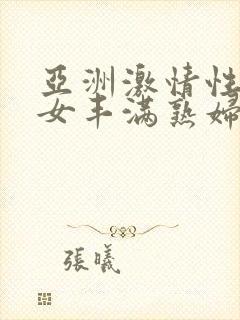 亞洲激情性
女丰满熟婦
張曦